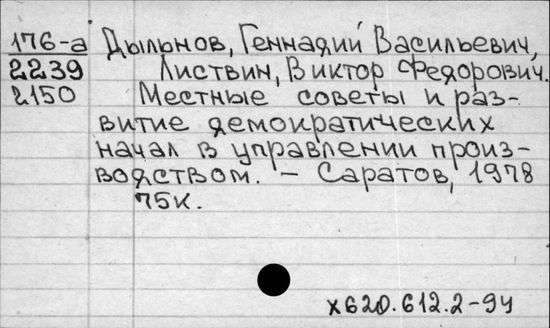 176-а Дыльнов, Геннадий Васильевич,
2239 Листвин, Виктор Федорович.
2150 Местные советы и раз-
витие демократических
начал в управлении произ-
водством. – Саратов, 1978
75к.
х620.612.2-94